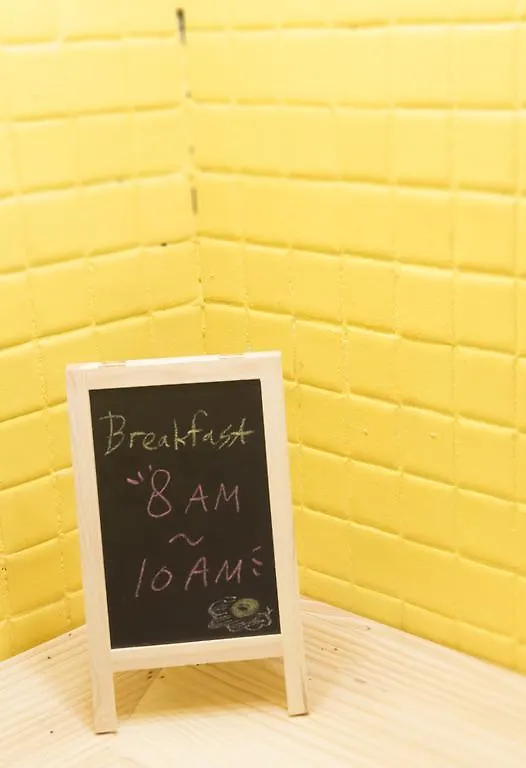 Breakfast
8 AM
~
10 AM